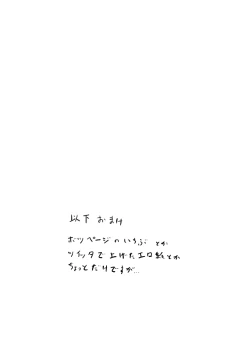 以下 おまけ
ボツページのいちぶ とか
ツイッタで上げたエロ絵とか
ちょっとだけですが…